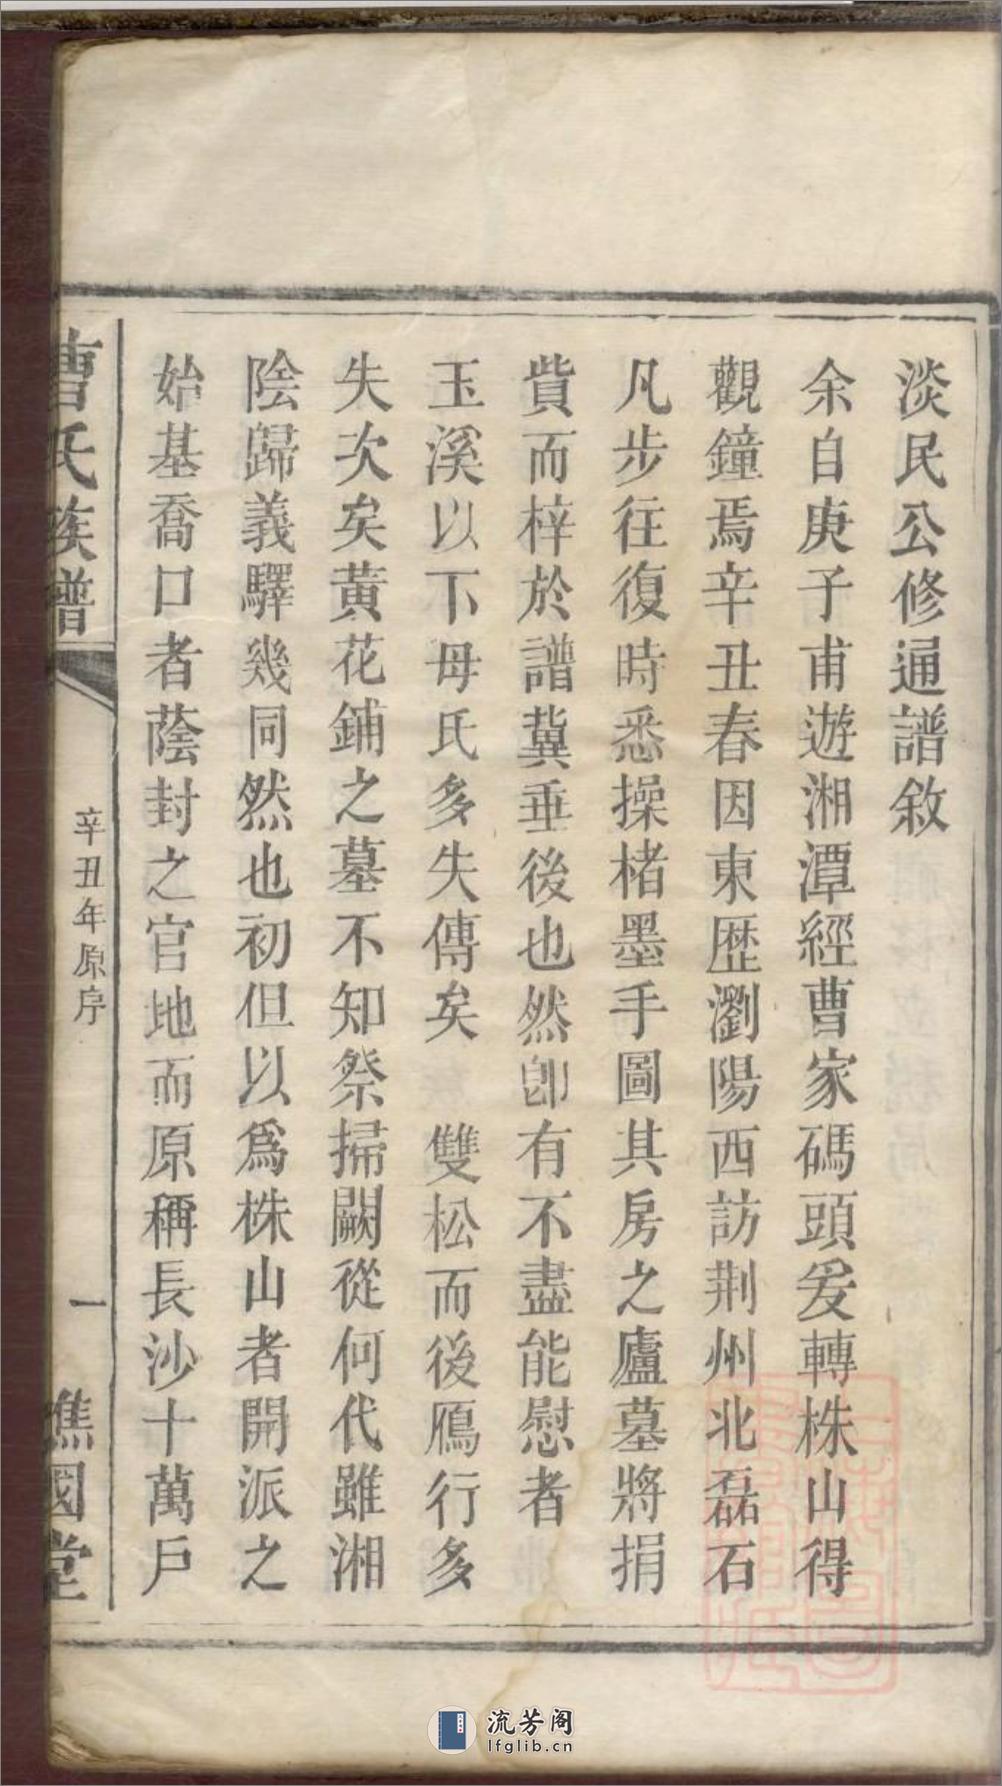 淡民公修通譜敘
余自庚子甫遊湘潭經曹家碼頭爰轉株山得
觀鐘焉辛丑春因東歷瀏陽西訪荆州北磊石
凡步往復時悉操楮墨手圖其房之廬墓將捐
貲而梓於譜冀垂後也然卽有不盡能慰者
玉溪以下毋氏多失傳矣　雙松而後鴈行多
失次矣黃花鋪之墓不知祭掃闕從何代雖湘
陰歸義驛幾同然也初但以爲株山者開派之
始基喬口者蔭封之官地而原稱長沙十萬戶
曹氏族譜
辛丑年原序
一
譙國堂
流芳阁
lfglib.cn